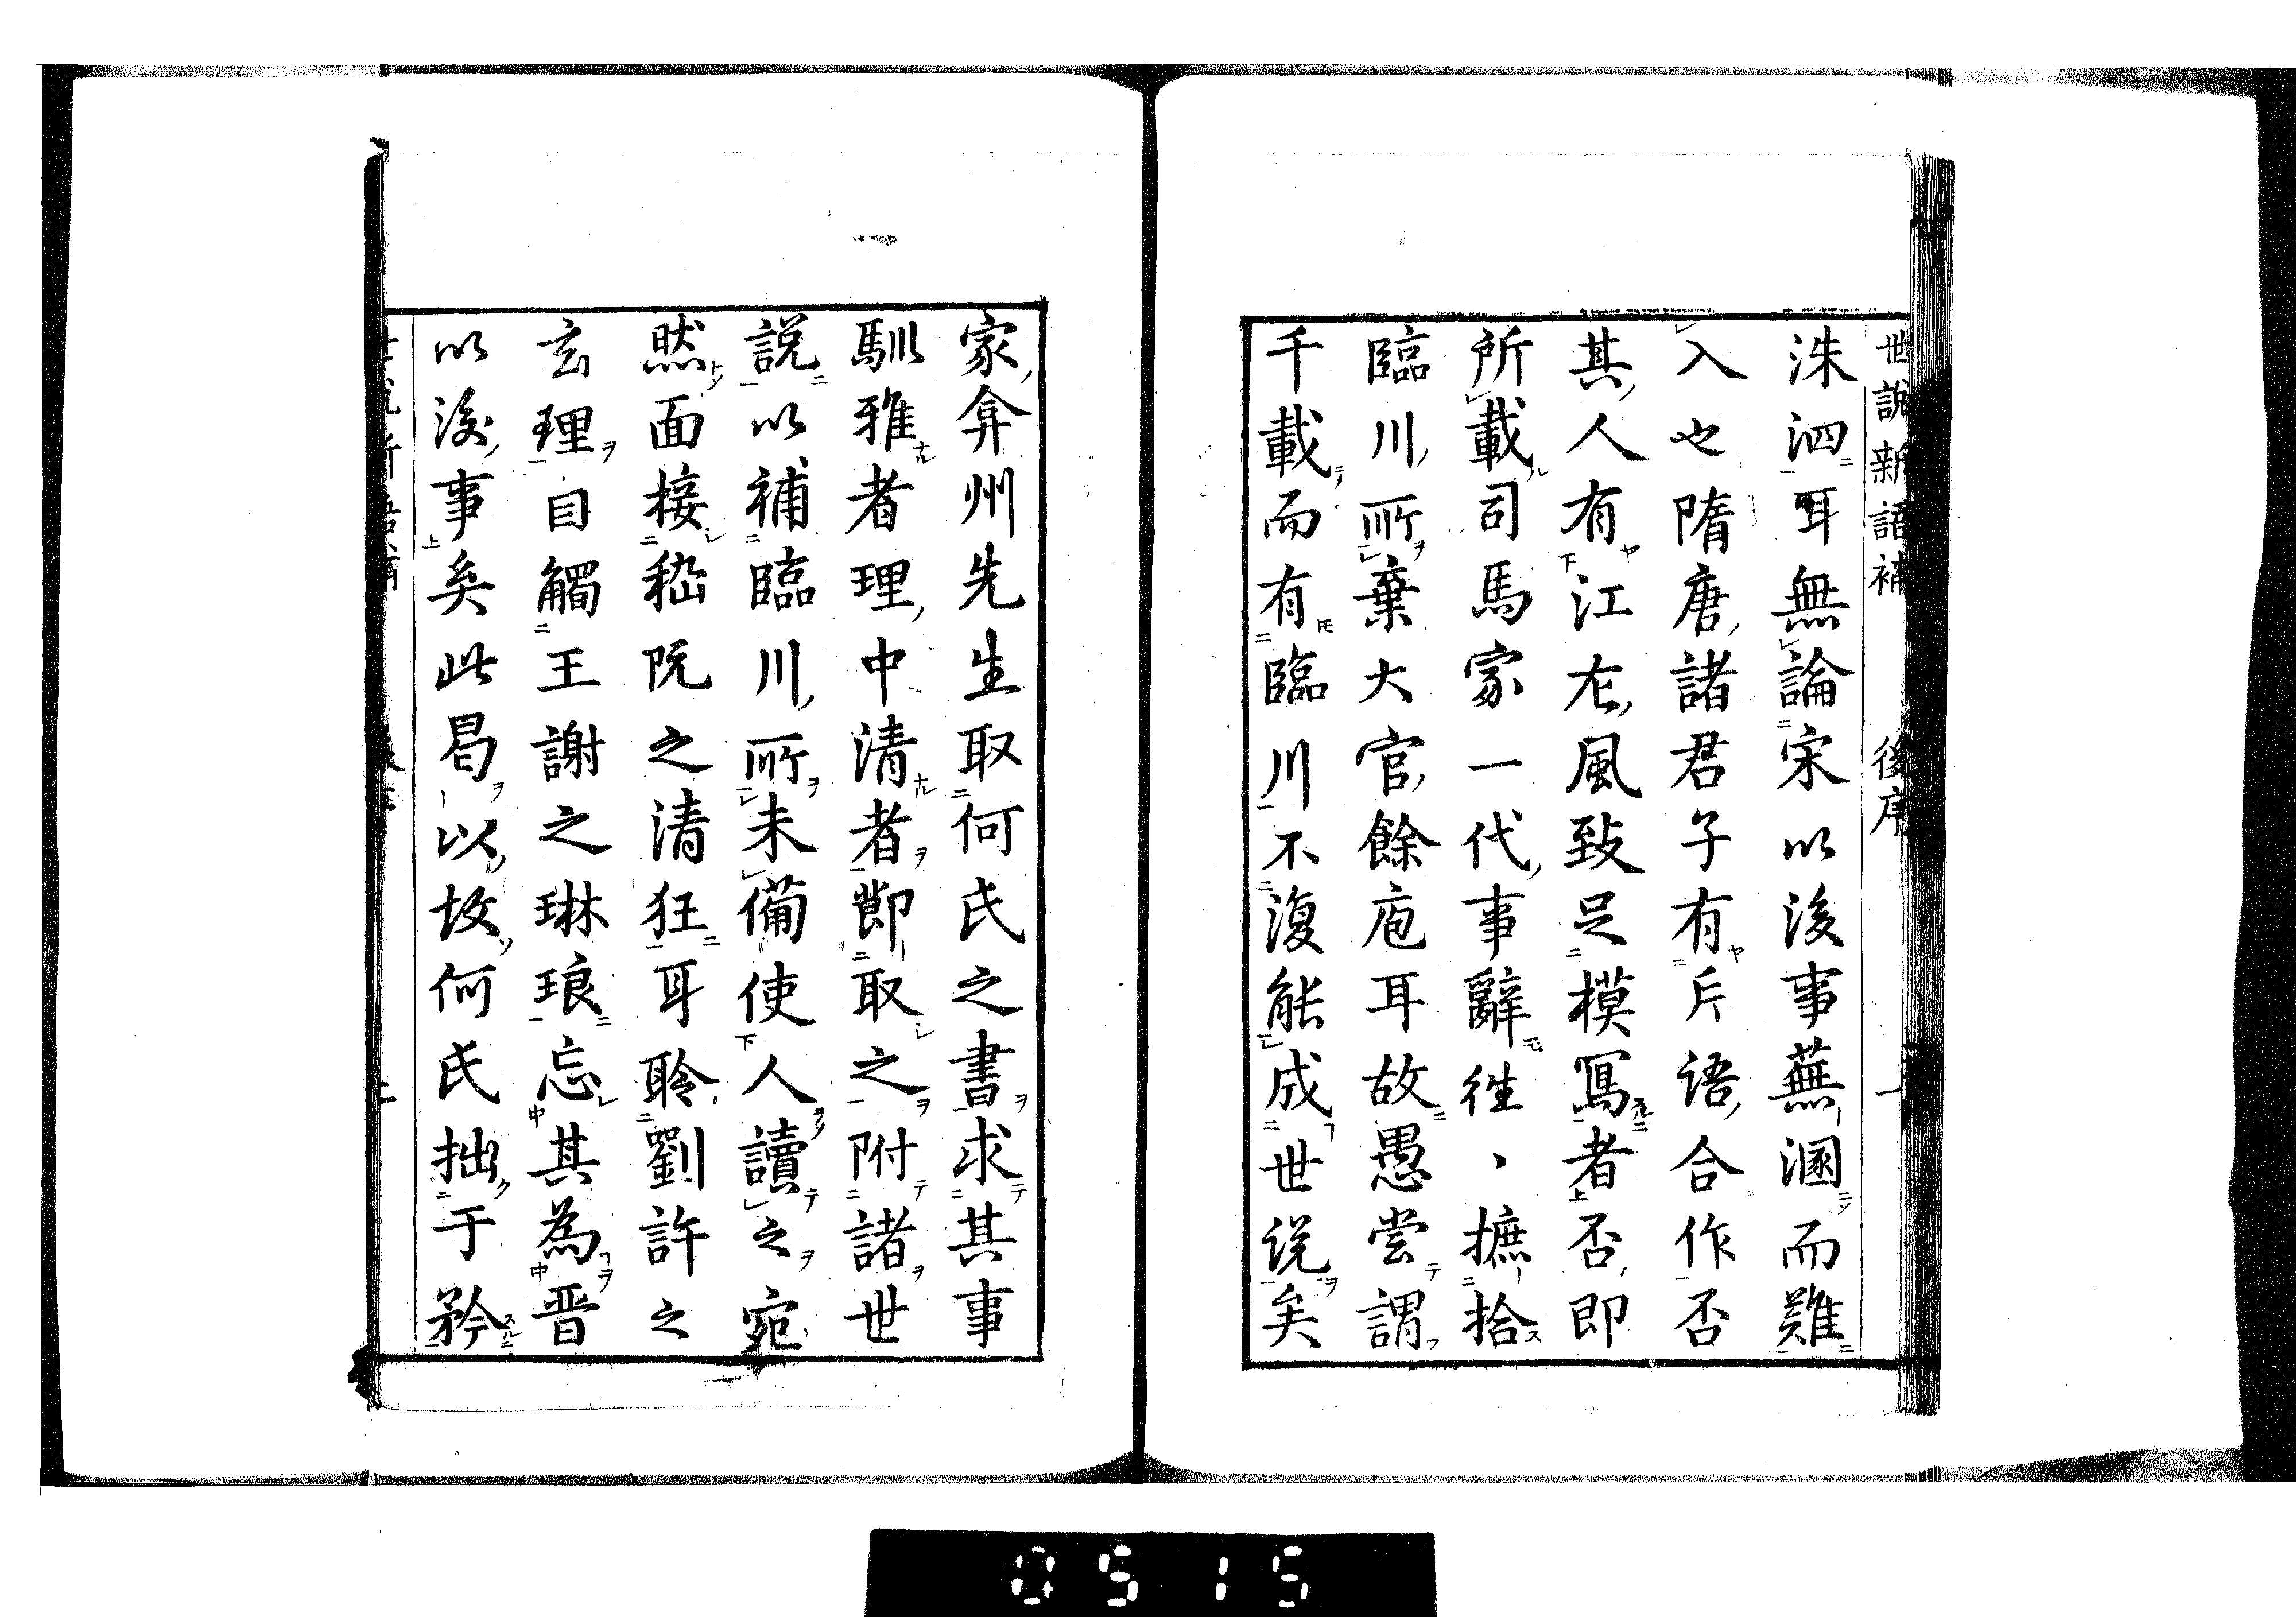 世說新語補　後序　一
洙泗耳無論宋以後事蕪溷而難
入也隋唐諸君子有片語合作否
其人有江左風致足模寫者否即
所載司馬家一代事辭徃、摭拾
臨川所棄大官餘庖耳故愚嘗謂
千載而有臨川不復能成世說矣
家弇州先生取何氏之書求其事
馴雅者理中清者節取之附諸世
說以補臨川所未備使人讀之宛
然面接嵇阮之清狂耳聆劉許之
玄理目觸王謝之琳琅忘其為晉
以後事矣此曷以故何氏拙于矜
0515